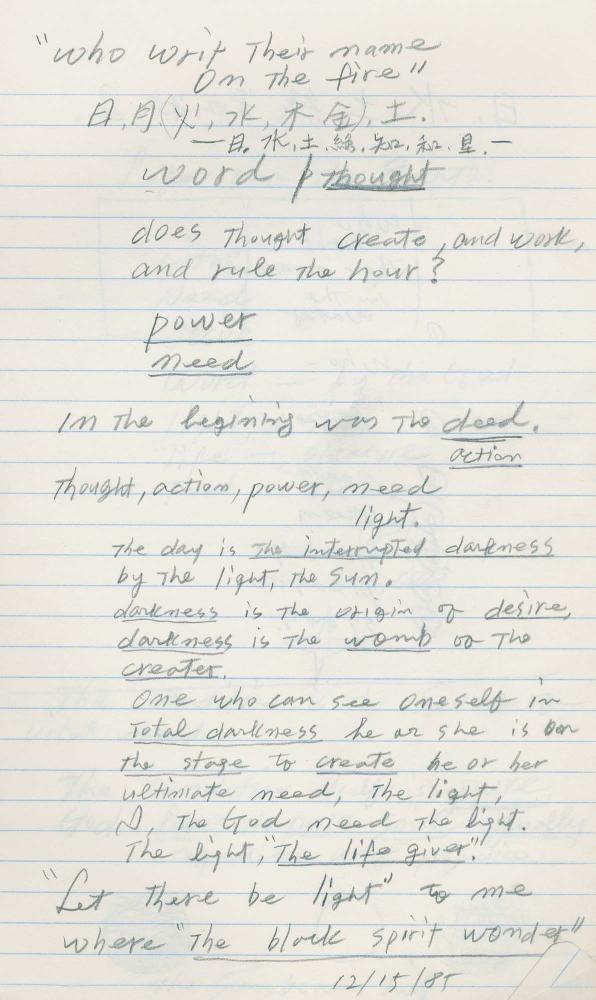 "who writ Their name
On the fire"
日, 月(火, 水, 木 金), 土.
一日. 水, 土. 緑. 知. 和. 星. 一
word / thought
does Thought create, and work,
and rule the hour?
power
need
In The begining was The deed.
action
Thought, action, power, need
light.
The day is The interrupted darkness
by The light, The Sun.
darkness is The origin of desire,
darkness is The womb of The
creater.
One who can see oneself in
Total darkness he or she is on
the stage to create he or her
ultimate need, The light,
The God need The light.
The light, "The life giver".
"Let There be light" to me
where "The black spirit wonder"
12/15/85